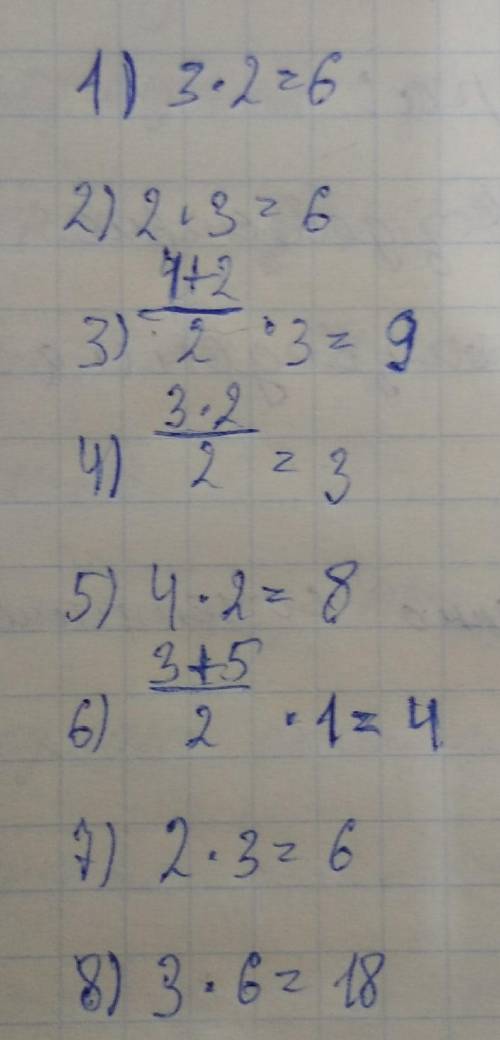 1) 3·2=6
2) 2·3=6
3) \frac{4+2}{2} ·3=9
4) \frac{3·2}{2} =3
5) 4·2=8
6) \frac{3+5}{2} ·1=4
7) 2·3=6
8) 3·6=18